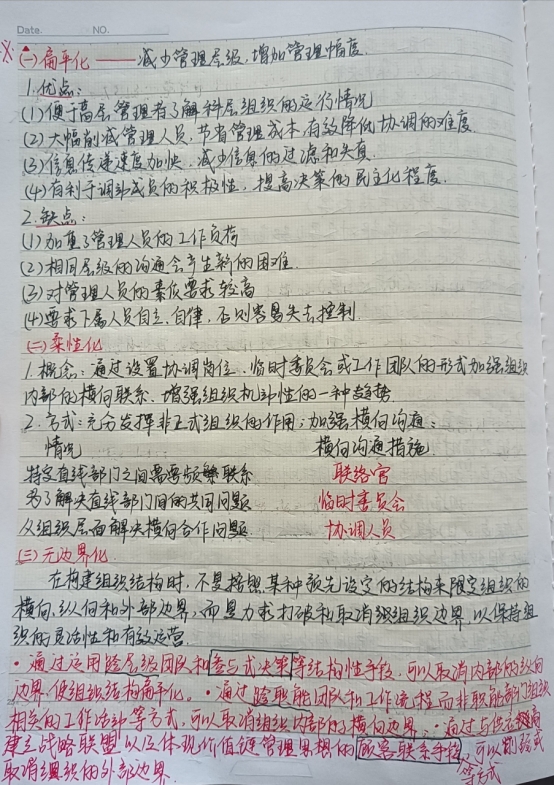 Date. NO.
(一)扁平化——减少管理层级,增加管理幅度.
1.优点:
(1)便于高层管理者了解科层组织的运行情况
(2)大幅削减管理人员,节省管理成本,有效降低协调的难度.
(3)信息传递速度加快,减少信息的过滤和失真.
(4)有利于调动成员的积极性,提高决策的民主化程度.
2.缺点:
(1)加重了管理人员的工作负荷
(2)相同层级的沟通会产生新的困难.
(3)对管理人员的素质要求较高
(4)要求下属人员自主、自律,否则容易失去控制.
(二)柔性化
1.概念:通过设置协调岗位、临时委员会或工作团队的形式加强组织
内部的横向联系,增强组织机动性的一种趋势.
2.方式:充分发挥非正式组织的作用;加强横向沟通:
情况 横向沟通措施.
特定直线部门之间需要频繁联系 联络官
为了解决直线部门间的共同问题 临时委员会
从组织层面解决横向合作问题 协调人员
(三)无边界化.
在构建组织结构时,不是按照某种预先设定的结构来限定组织的
横向、纵向和外部边界,而是力求打破和取消组织边界,以保持组
织的灵活性和有效运营.
·通过运用跨层级团队和参与式决策等结构性手段,可以取消内部的纵向
边界,使组织结构扁平化。·通过跨职能团队和工作流程而非职能部门组织
相关的工作活动等方式,可以取消组织内部的横向边界.·通过与供应商
建立战略联盟以及体现价值链管理思想的顾客联系手段等方式,可以削弱或
取消组织的外部边界.